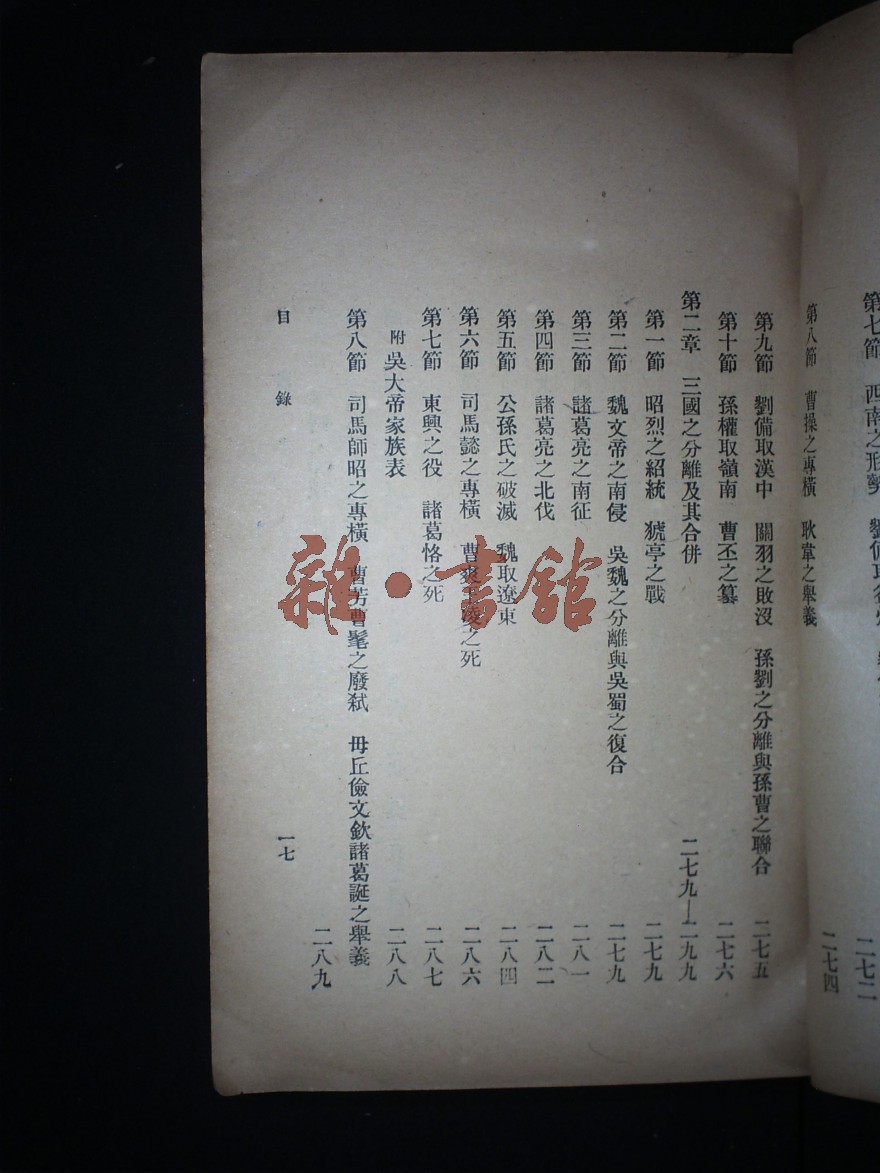 第七節　西南之形勢　劉備取　二七二
第八節　曹操之專橫　耿韋之舉義　二七四
第九節　劉備取漢中　關羽之敗沒　孫劉之分離與孫曹之聯合　二七五
第十節　孫權取嶺南　曹丕之篡　二七六
第二章　三國之分離及其合併　二七九—二九九
第一節　昭烈之紹統　猇亭之戰　二七九
第二節　魏文帝之南侵　吳魏之分離與吳蜀之復合　二七九
第三節　諸葛亮之南征　二八一
第四節　諸葛亮之北伐　二八二
第五節　公孫氏之破滅　魏取遼東　二八四
第六節　司馬懿之專橫　曹爽王淩之死　二八六
第七節　東興之役　諸葛恪之死　二八七
附　吳大帝家族表　二八八
第八節　司馬師昭之專橫　曹芳曹髦之廢弒　毌丘儉文欽諸葛誕之舉義
二八九
目　錄　一七
雜·書館